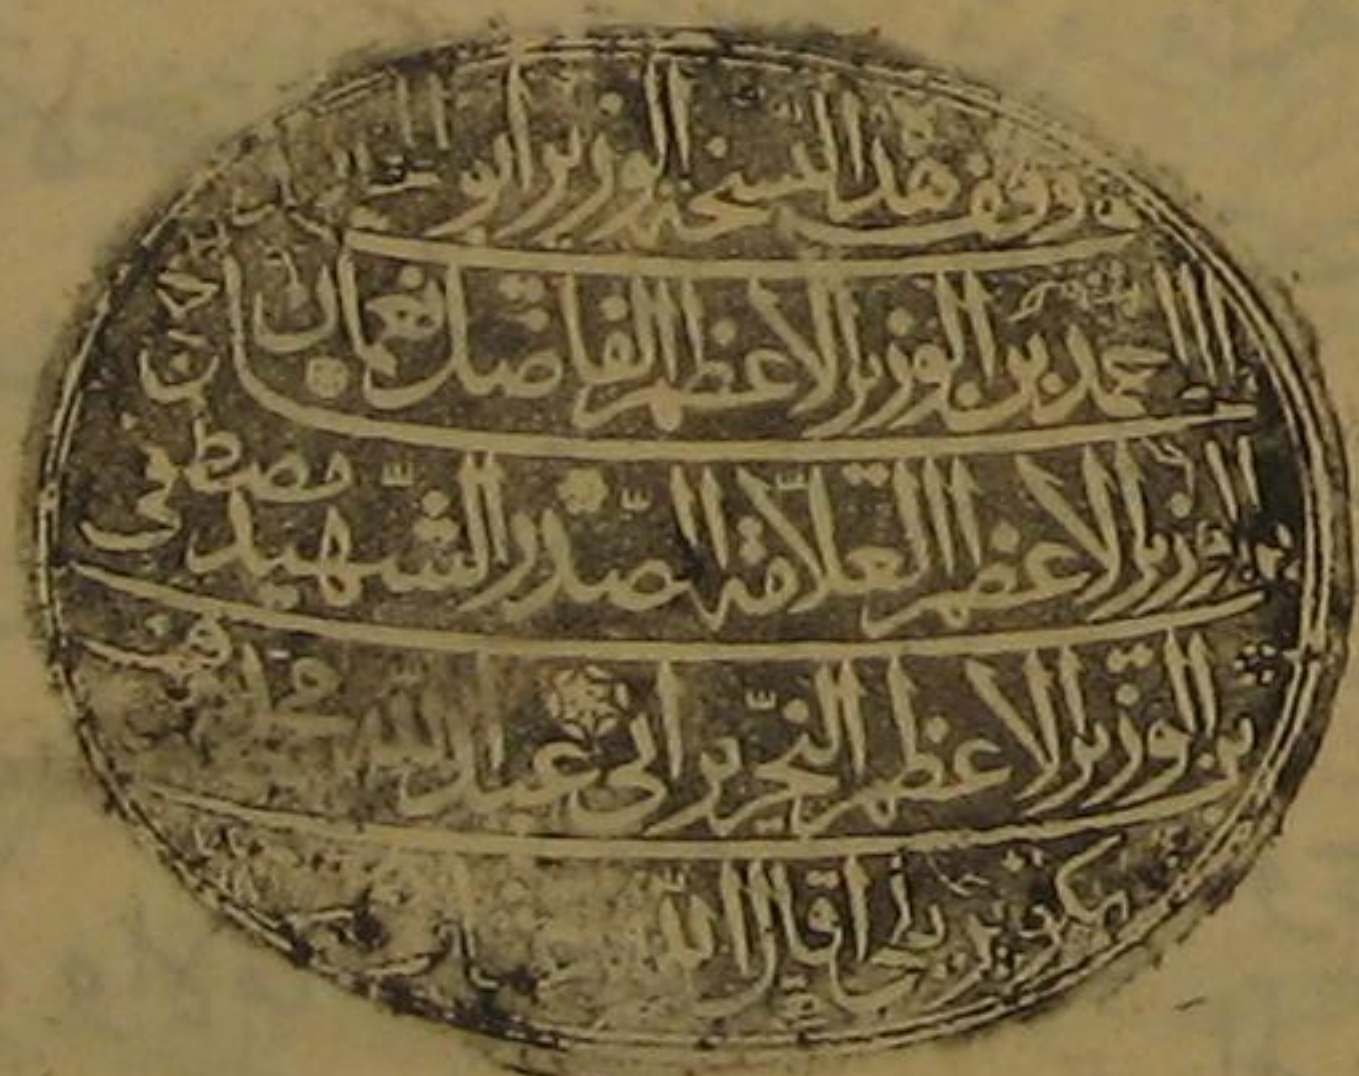 وقف هذا النسخه الوزير ابو
احمد بن الوزير الاعظم الفاضل نعمان بن
الوزير الاعظم العلّامة الصدر الشّهيد مصطفى
بن الوزير الاعظم النّحرير ابى عبد الله محمد
بكوپريلى اقال الله